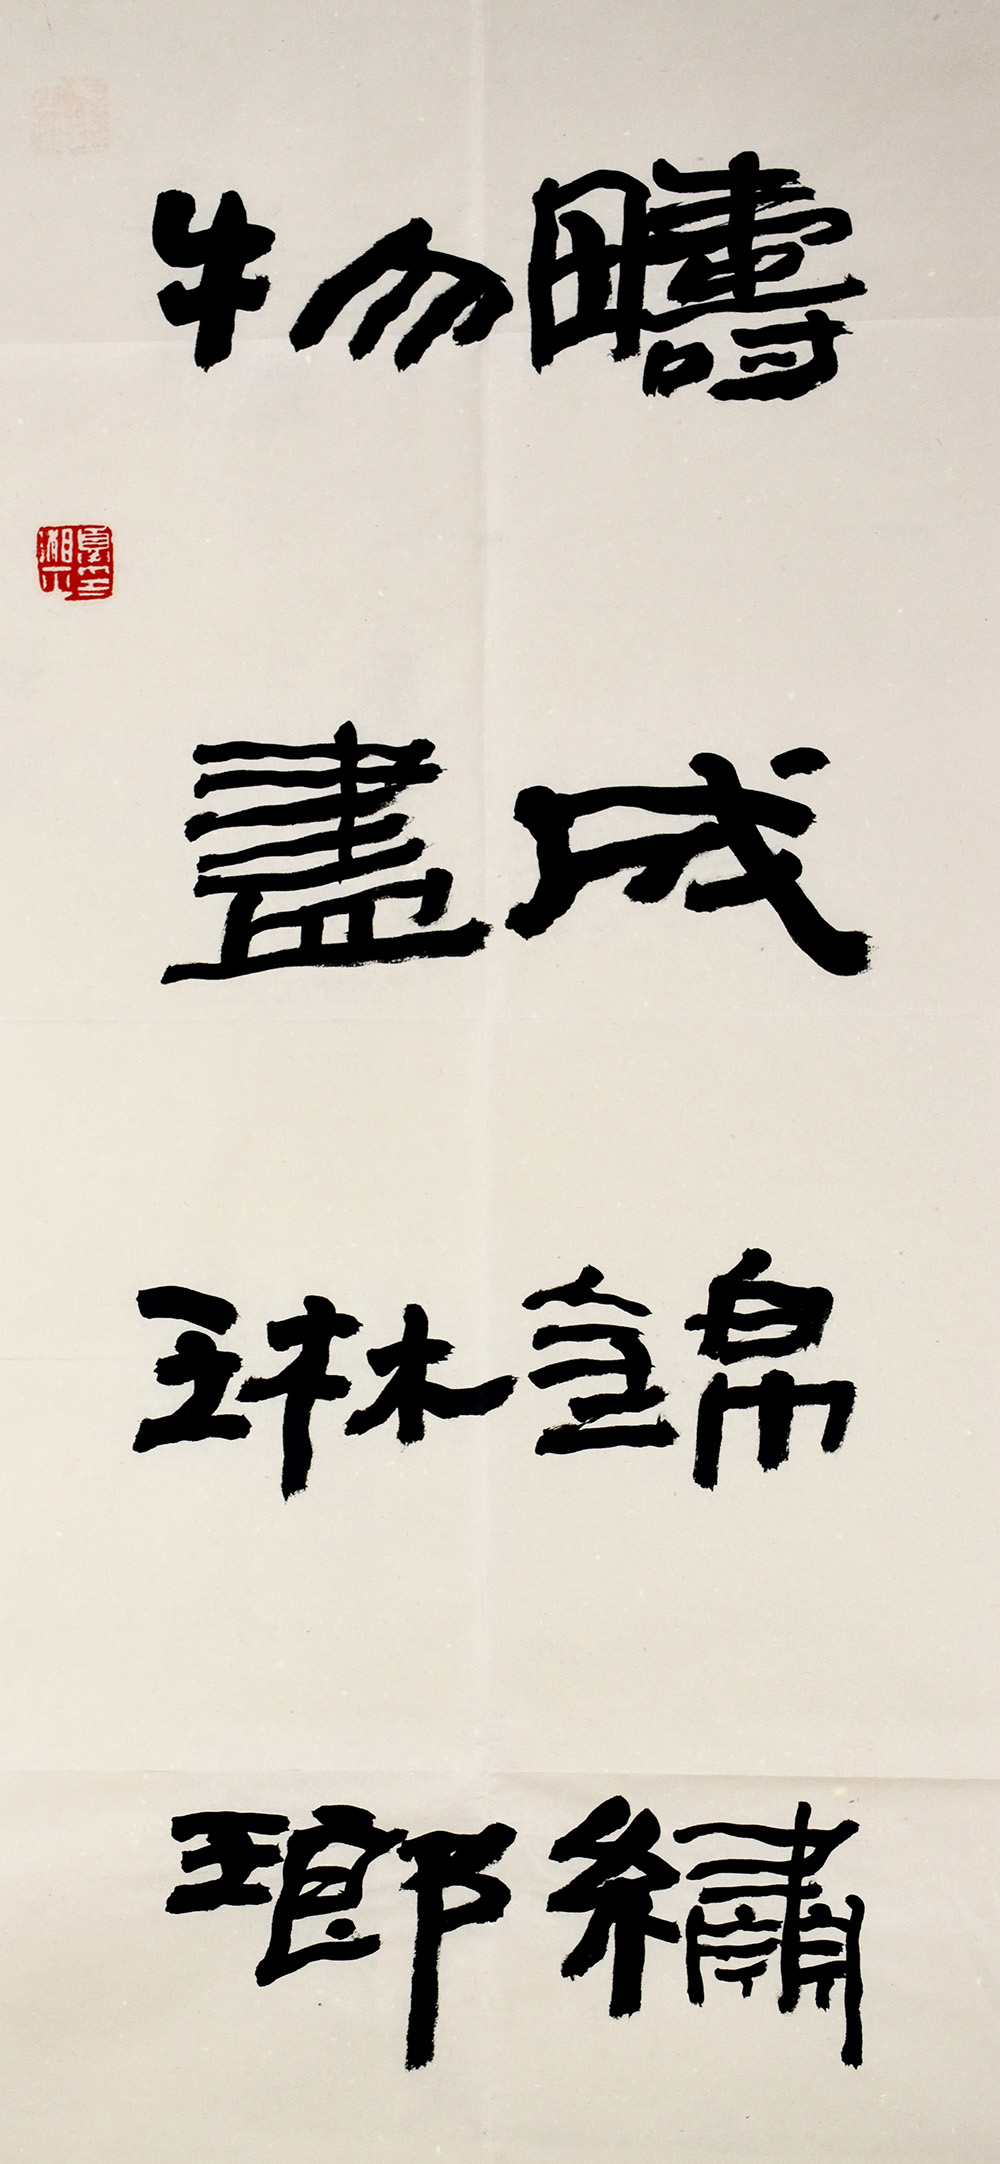 疇成錦繡
物盡琳瑯